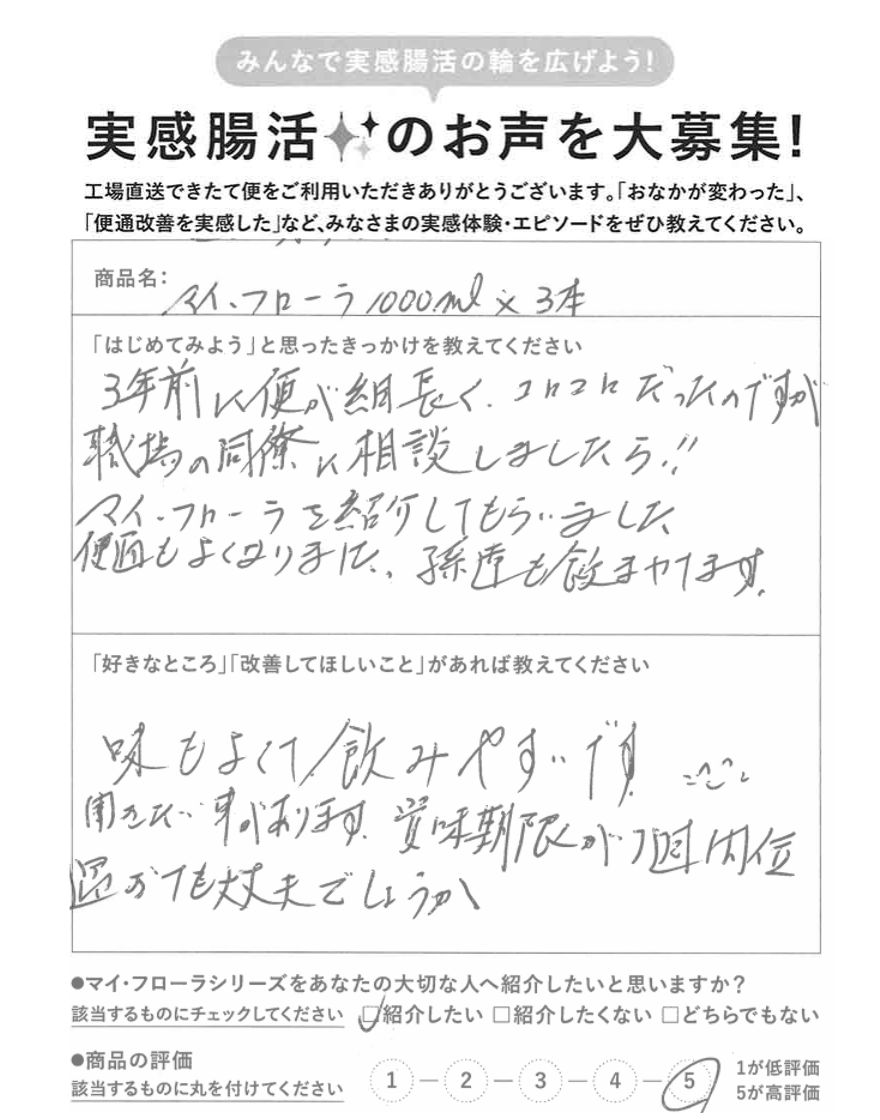 みんなで実感腸活の輪を広げよう!
実感腸活のお声を大募集!
工場直送できたて便をご利用いただきありがとうございます。「おなかが変わった」、
「便通改善を実感した」など、みなさまの実感体験・エピソードをぜひ教えてください。
商品名:
マイ・フローラ 1000ml × 3本
「はじめてみよう」と思ったきっかけを教えてください
3年前に便が細長く、コロコロだったのですが
職場の同僚に相談しましたら!!
マイ・フローラを紹介してもらいました
便通もよくなりました、孫達も飲ませてます。
「好きなところ」「改善してほしいこと」があれば教えてください
味もよくて飲みやすいです
聞きたい事があります。賞味期限が1週間位
過ぎても大丈夫でしょうか
●マイ・フローラシリーズをあなたの大切な人へ紹介したいと思いますか?
該当するものにチェックしてください □紹介したい □紹介したくない □どちらでもない
●商品の評価
該当するものに丸を付けてください 1 — 2 — 3 — 4 — 5
1が低評価
5が高評価